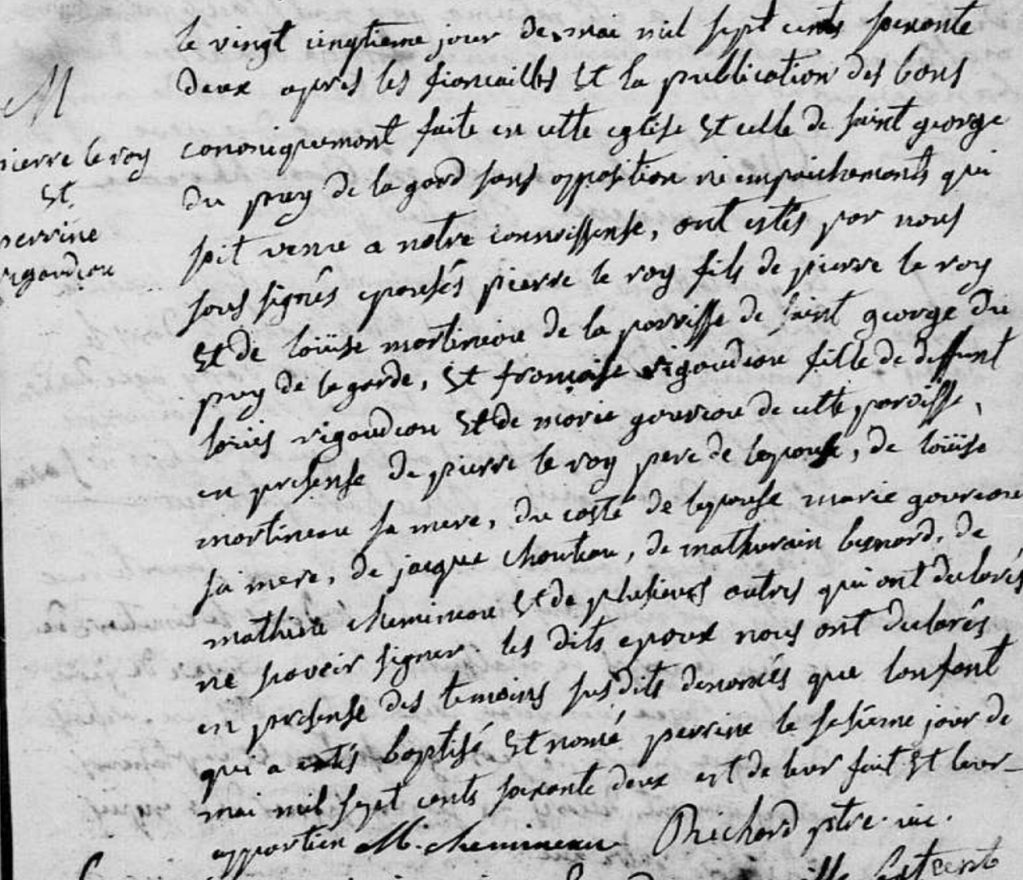 M
pierre le roy
Et
perrine
rigaudeau
le vingt cinqtieme jour de mai mil sept cents soixante
deux apres les fiancailles Et la publication des bans
cononiquement faite en cette eglise Et celle de saint george
du puy de la gard sans opposition ni empaichements qui
soit venue a notre connoissense, ont estés par nous
sous signés epousés pierre le roy fils de pierre le roy
Et de loüise martineau de la parroisse de saint george du
puy de la garde, Et francoise rigaudeau fille de deffunt
loüis rigaudeau Et de marie gouraou de cette paroisse,
en presense de pierre le roy pere de lepoux, de loüise
martineau sa mere, du costé de lepouse marie gouraou
sa mere, de jacque chouteau, de mathurain besnard, de
mathurin chemineau Et de plusieurs autres qui ont declarés
ne scavoir signer les dits epoux nous ont declarés
en presense des temoins susdits denomés que lenfant
qui a estés baptisé Et nomé perrine le sesieme jour de
mai mil sept cents soixante deux est de leur fait Et leur
appartien M. chemineau Richard ptre. vic.